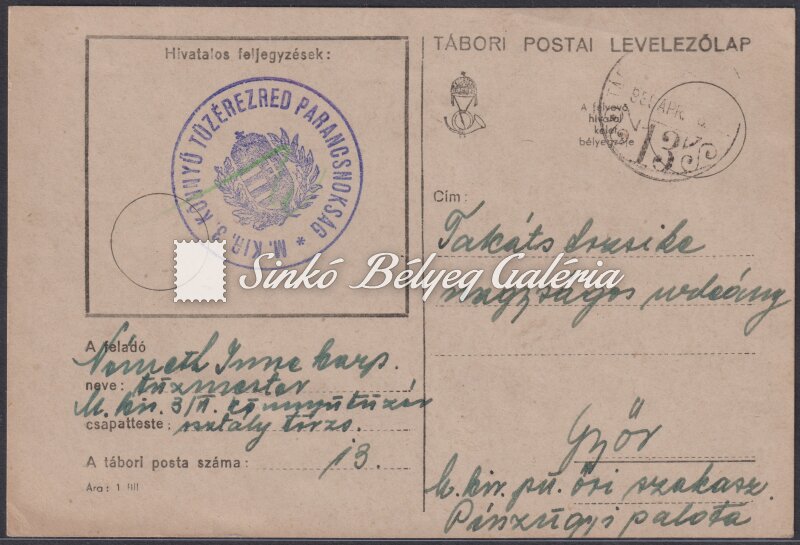 Hivatalos feljegyzések:
M. KIR. 3. KÖNNYŰ TÜZÉREZRED PARANCSNOKSÁG *
TÁBORI POSTAI LEVELEZŐLAP
A felvevő
hivatal
keleti
bélyegzője
13
Cím:
Takáts
nagyságos urleány
Győr
M. kir. pü. őri szakasz
Pénzügyi palota
Sinkó Bélyeg Galéria
A feladó
Németh Imre karp.
neve: tüzmester
M. kir. 3/II. könnyütüzér
csapatteste: osztály törzs.
A tábori posta száma: 13.
Ára: 1 fill